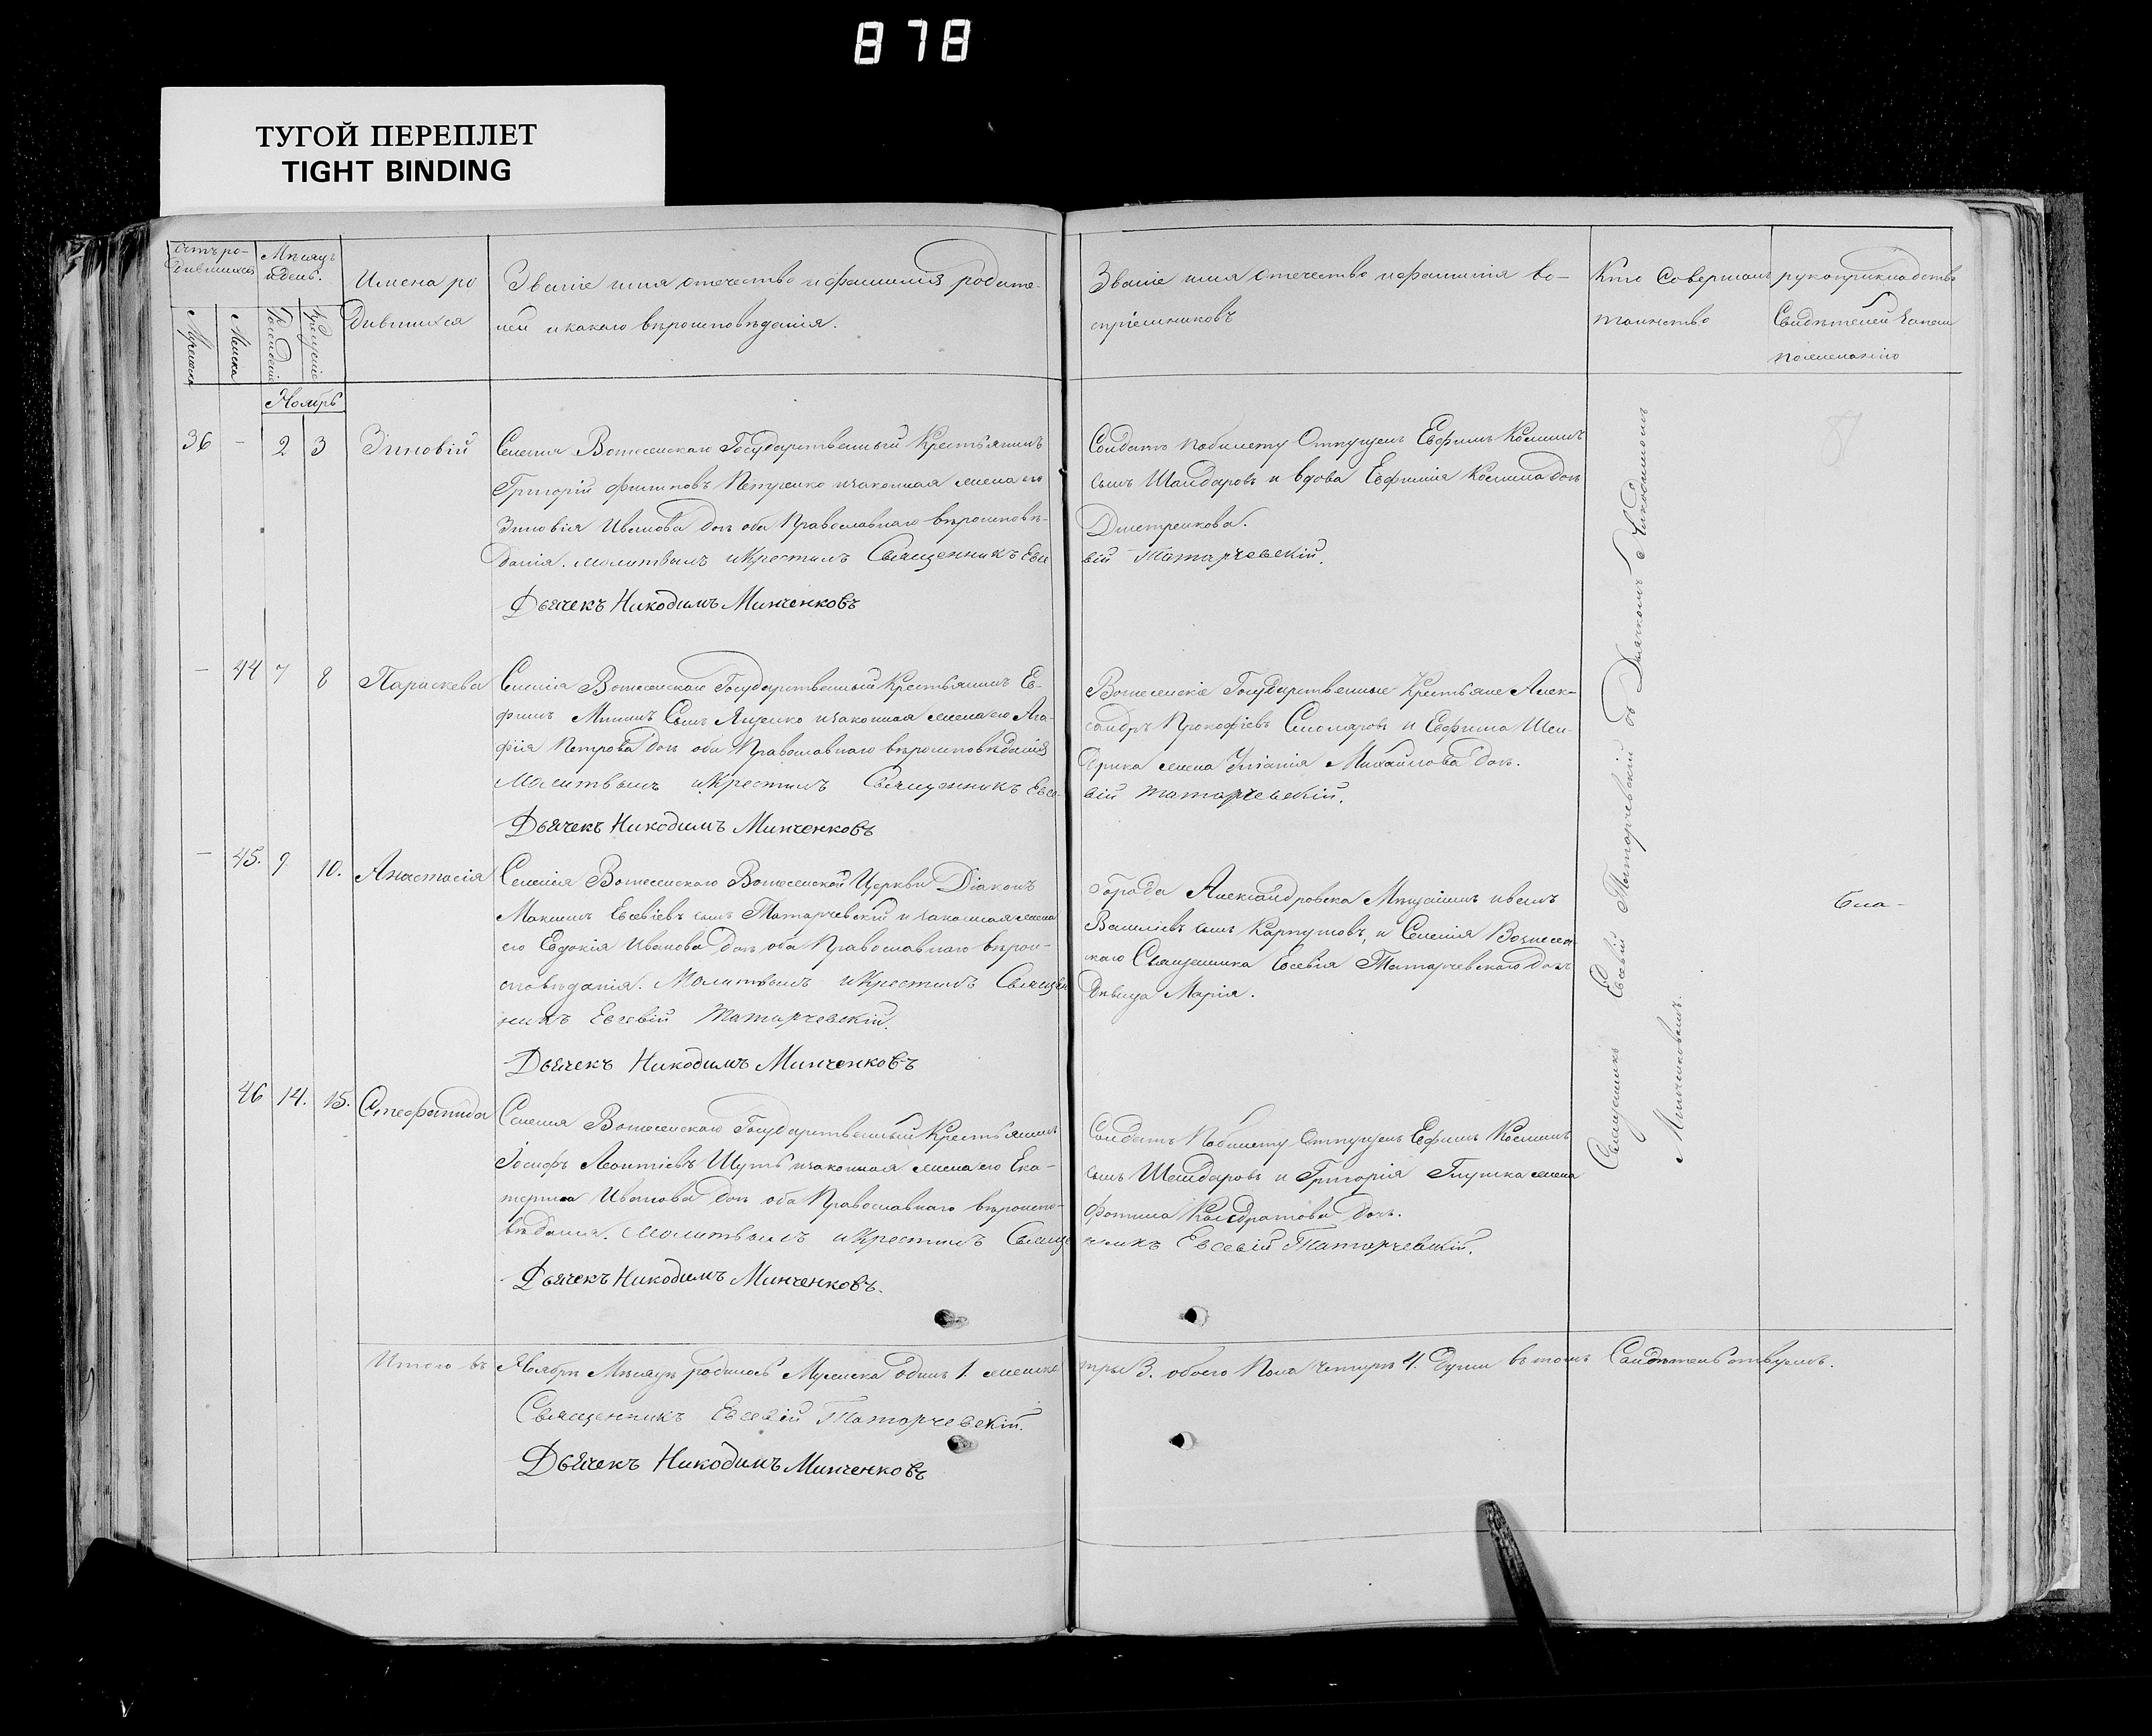 878
ТУГОЙ ПЕРЕПЛЕТ
TIGHT BINDING
Счетъ ро-
дившихся
Мѣсяцъ
и день.
Мужеска
Женска
Рожденіе
Крещеніе
Имена ро
дившихся
Званіе имя отечество и фамилія родите-
лей и какаго вѣроисповѣданія.
Званіе имя отечество и фамилія во-
спріемниковъ
Кто Совершалъ
таинство
рукоприкладство
Свидѣтелей
по желанію
Ноябрь
36 - 2 3 Зиновій
Селенія Вознесенскаго Государственный Крестьянинъ
Григорій Филиповъ Петренко и законная жена его
Зиновія Иванова дочь оба Православнаго вѣроисповѣ-
данія. молитвилъ и Крестилъ Священникъ Евсе
Дьячекъ Никодимъ Минченковъ
Солдатъ по билету Отпущен Евфимъ Косминъ
сынъ Шандаровъ и вдова Евфимія Космина дочь
Дметренкова.
вій Татарчевскій.
- 44 7 8 Параскева
Селенія Вознесенскаго Государственный Крестьянинъ Ев-
фимъ Мининъ Сынъ Яценко и законная жена его Ага-
фія Петрова дочь оба Православнаго вѣроисповѣданія
Молитвилъ и Крестилъ Священникъ Евсе-
Дьячекъ Никодимъ Минченковъ
Вознесенскіе Государственные Крестьяне Алек-
сандръ Прокофіевъ Столяровъ и Евфима Шен-
дрика жена Уліанія Михайлова дочь.
вій Татарчевскій.
- 45. 9 10. Анастасія
Селенія Вознесенскаго Вознесенской Церкви Діаконъ
Максимъ Евсевіевъ сынъ Татарчевскій и законная жена
его Евдокія Иванова дочь оба Православнаго вѣрои-
сповѣданія. Молитвилъ и Крестилъ Священ
никъ Евсевій Татарчевскій.
Дьячекъ Никодимъ Минченковъ
Города Александровска Мѣщанинъ Иванъ
Василіевъ сынъ Карпутовъ, и Селенія Вознесен
скаго Священника Евсевія Татарчевскаго дочь
дѣвица Марія.
46 14. 15. Стефанида
Селенія Вознесенскаго Государственный Крестьянинъ
Іосифъ Леонтіевъ Шуть и законная жена его Ека-
терина Иванова дочь оба Православнаго вѣроиспо-
вѣданія. Молитвилъ и Крестилъ Свяще
Дьячекъ Никодимъ Минченковъ.
Солдатъ По билету Отпущен Евфимъ Косминъ
сынъ Шандаровъ и Григорія Глушка жена
Фотина Кондратова дочь.
нникъ Евсевій Татарчевскій.
Священникъ Евсевій Татарчевскій съ Дьячкомъ Никодимомъ
Минченковымъ.
бла-
Итого въ Ноябрѣ Мѣсяцѣ родилось Мужеска одинъ 1. женска три 3. обоего Пола четыре 4. души въ томъ Свидѣтельствуемъ.
Священникъ Евсевій Татарчевскій.
Дьячекъ Никодимъ Минченковъ